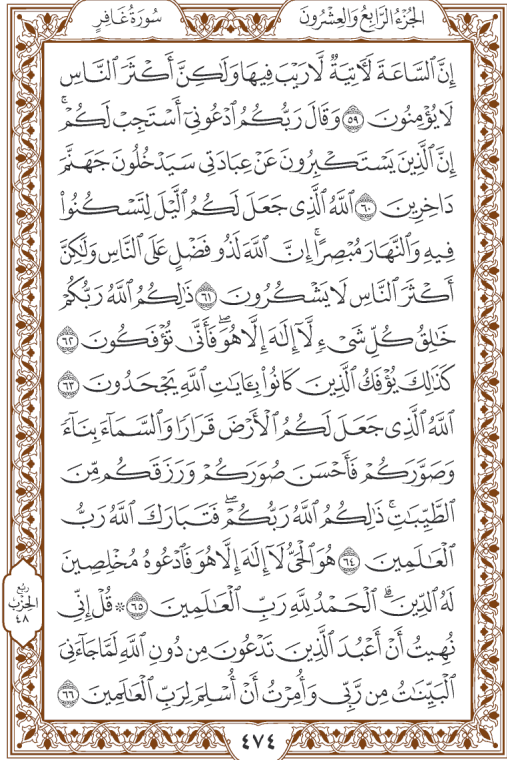 الجُزْءُ الرَّابِعُ وَالعِشْرُونَ
سُورَةُ غَافِرٍ
إِنَّ ٱلسَّاعَةَ لَأٓتِيَةٌ لَّا رَيْبَ فِيهَا وَلَٰكِنَّ أَكْثَرَ ٱلنَّاسِ
لَا يُؤْمِنُونَ ٥٩ وَقَالَ رَبُّكُمُ ٱدْعُونِيٓ أَسْتَجِبْ لَكُمْۚ
إِنَّ ٱلَّذِينَ يَسْتَكْبِرُونَ عَنْ عِبَادَتِي سَيَدْخُلُونَ جَهَنَّمَ
دَاخِرِينَ ٦٠ ٱللَّهُ ٱلَّذِي جَعَلَ لَكُمُ ٱلَّيْلَ لِتَسْكُنُوا۟
فِيهِ وَٱلنَّهَارَ مُبْصِرًاۚ إِنَّ ٱللَّهَ لَذُو فَضْلٍ عَلَى ٱلنَّاسِ وَلَٰكِنَّ
أَكْثَرَ ٱلنَّاسِ لَا يَشْكُرُونَ ٦١ ذَٰلِكُمُ ٱللَّهُ رَبُّكُمْ
خَٰلِقُ كُلِّ شَيْءٍ لَّآ إِلَٰهَ إِلَّا هُوَۖ فَأَنَّىٰ تُؤْفَكُونَ ٦٢
كَذَٰلِكَ يُؤْفَكُ ٱلَّذِينَ كَانُوا۟ بِـَٔايَٰتِ ٱللَّهِ يَجْحَدُونَ ٦٣
ٱللَّهُ ٱلَّذِي جَعَلَ لَكُمُ ٱلْأَرْضَ قَرَارًا وَٱلسَّمَآءَ بِنَآءً
وَصَوَّرَكُمْ فَأَحْسَنَ صُوَرَكُمْ وَرَزَقَكُم مِّنَ
ٱلطَّيِّبَٰتِۚ ذَٰلِكُمُ ٱللَّهُ رَبُّكُمْۖ فَتَبَارَكَ ٱللَّهُ رَبُّ
ٱلْعَٰلَمِينَ ٦٤ هُوَ ٱلْحَيُّ لَآ إِلَٰهَ إِلَّا هُوَ فَٱدْعُوهُ مُخْلِصِينَ
لَهُ ٱلدِّينَۗ ٱلْحَمْدُ لِلَّهِ رَبِّ ٱلْعَٰلَمِينَ ٦٥ ۞ قُلْ إِنِّي
نُهِيتُ أَنْ أَعْبُدَ ٱلَّذِينَ تَدْعُونَ مِن دُونِ ٱللَّهِ لَمَّا جَآءَنِيَ
ٱلْبَيِّنَٰتُ مِن رَّبِّي وَأُمِرْتُ أَنْ أُسْلِمَ لِرَبِّ ٱلْعَٰلَمِينَ ٦٦
رُبع
الحِزْب
٤٨
٤٧٤